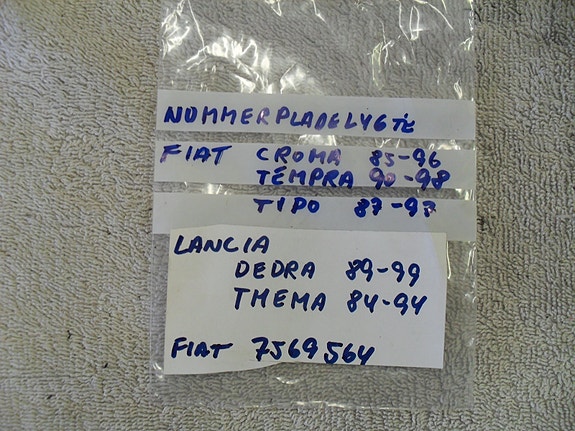 NUMMERPLADELYGTE
FIAT CROMA 85-96
TEMPRA 90-98
TIPO 87-93
LANCIA
DEDRA 89-99
THEMA 84-94
FIAT 7569564